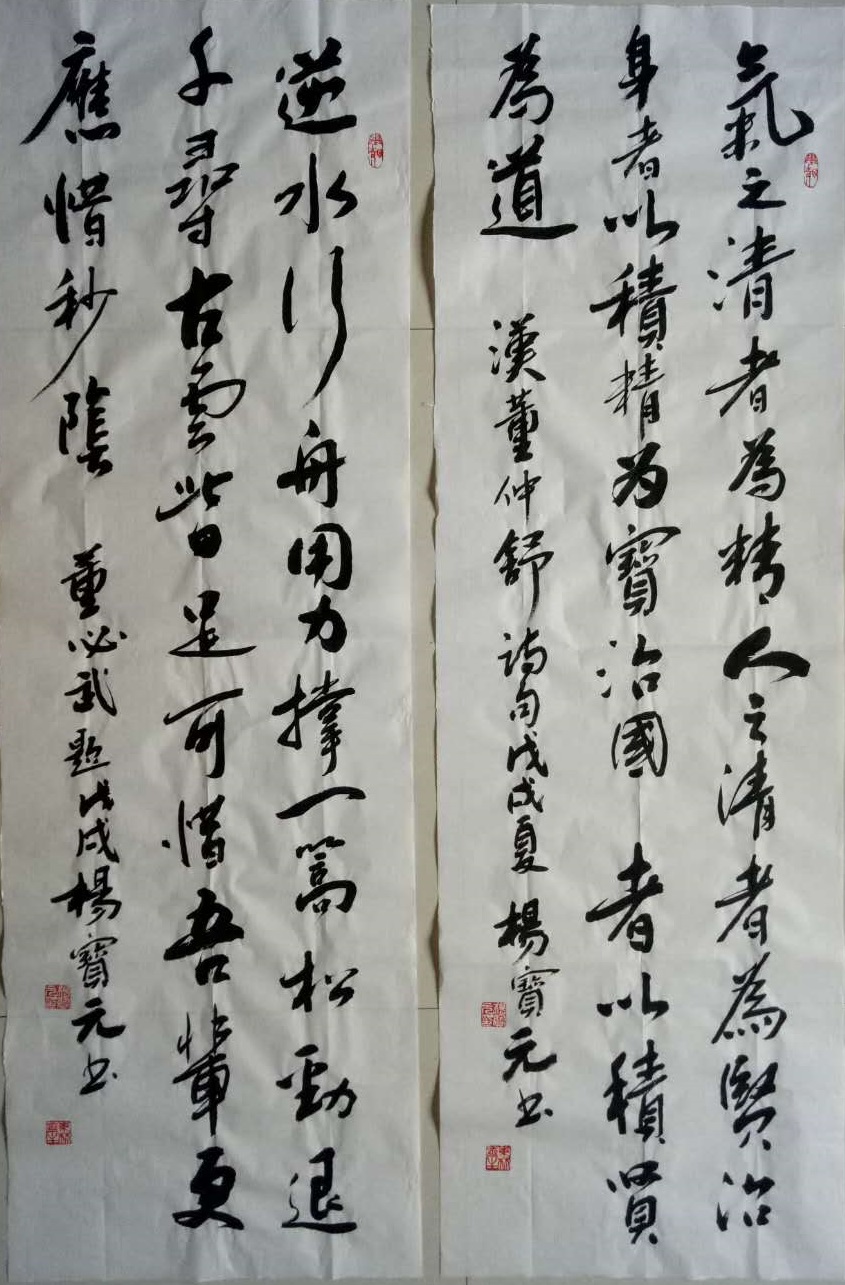 氣之清者為精人之清者為賢治
身者以積精为寶治國者以積賢
為道
漢董仲舒詩句戊戌夏楊寶元书
逆水行舟用力撐一篙松勁退
千尋古雲皆足可惜吾輩更
應惜秒陰
董必武題戊戌楊寶元书